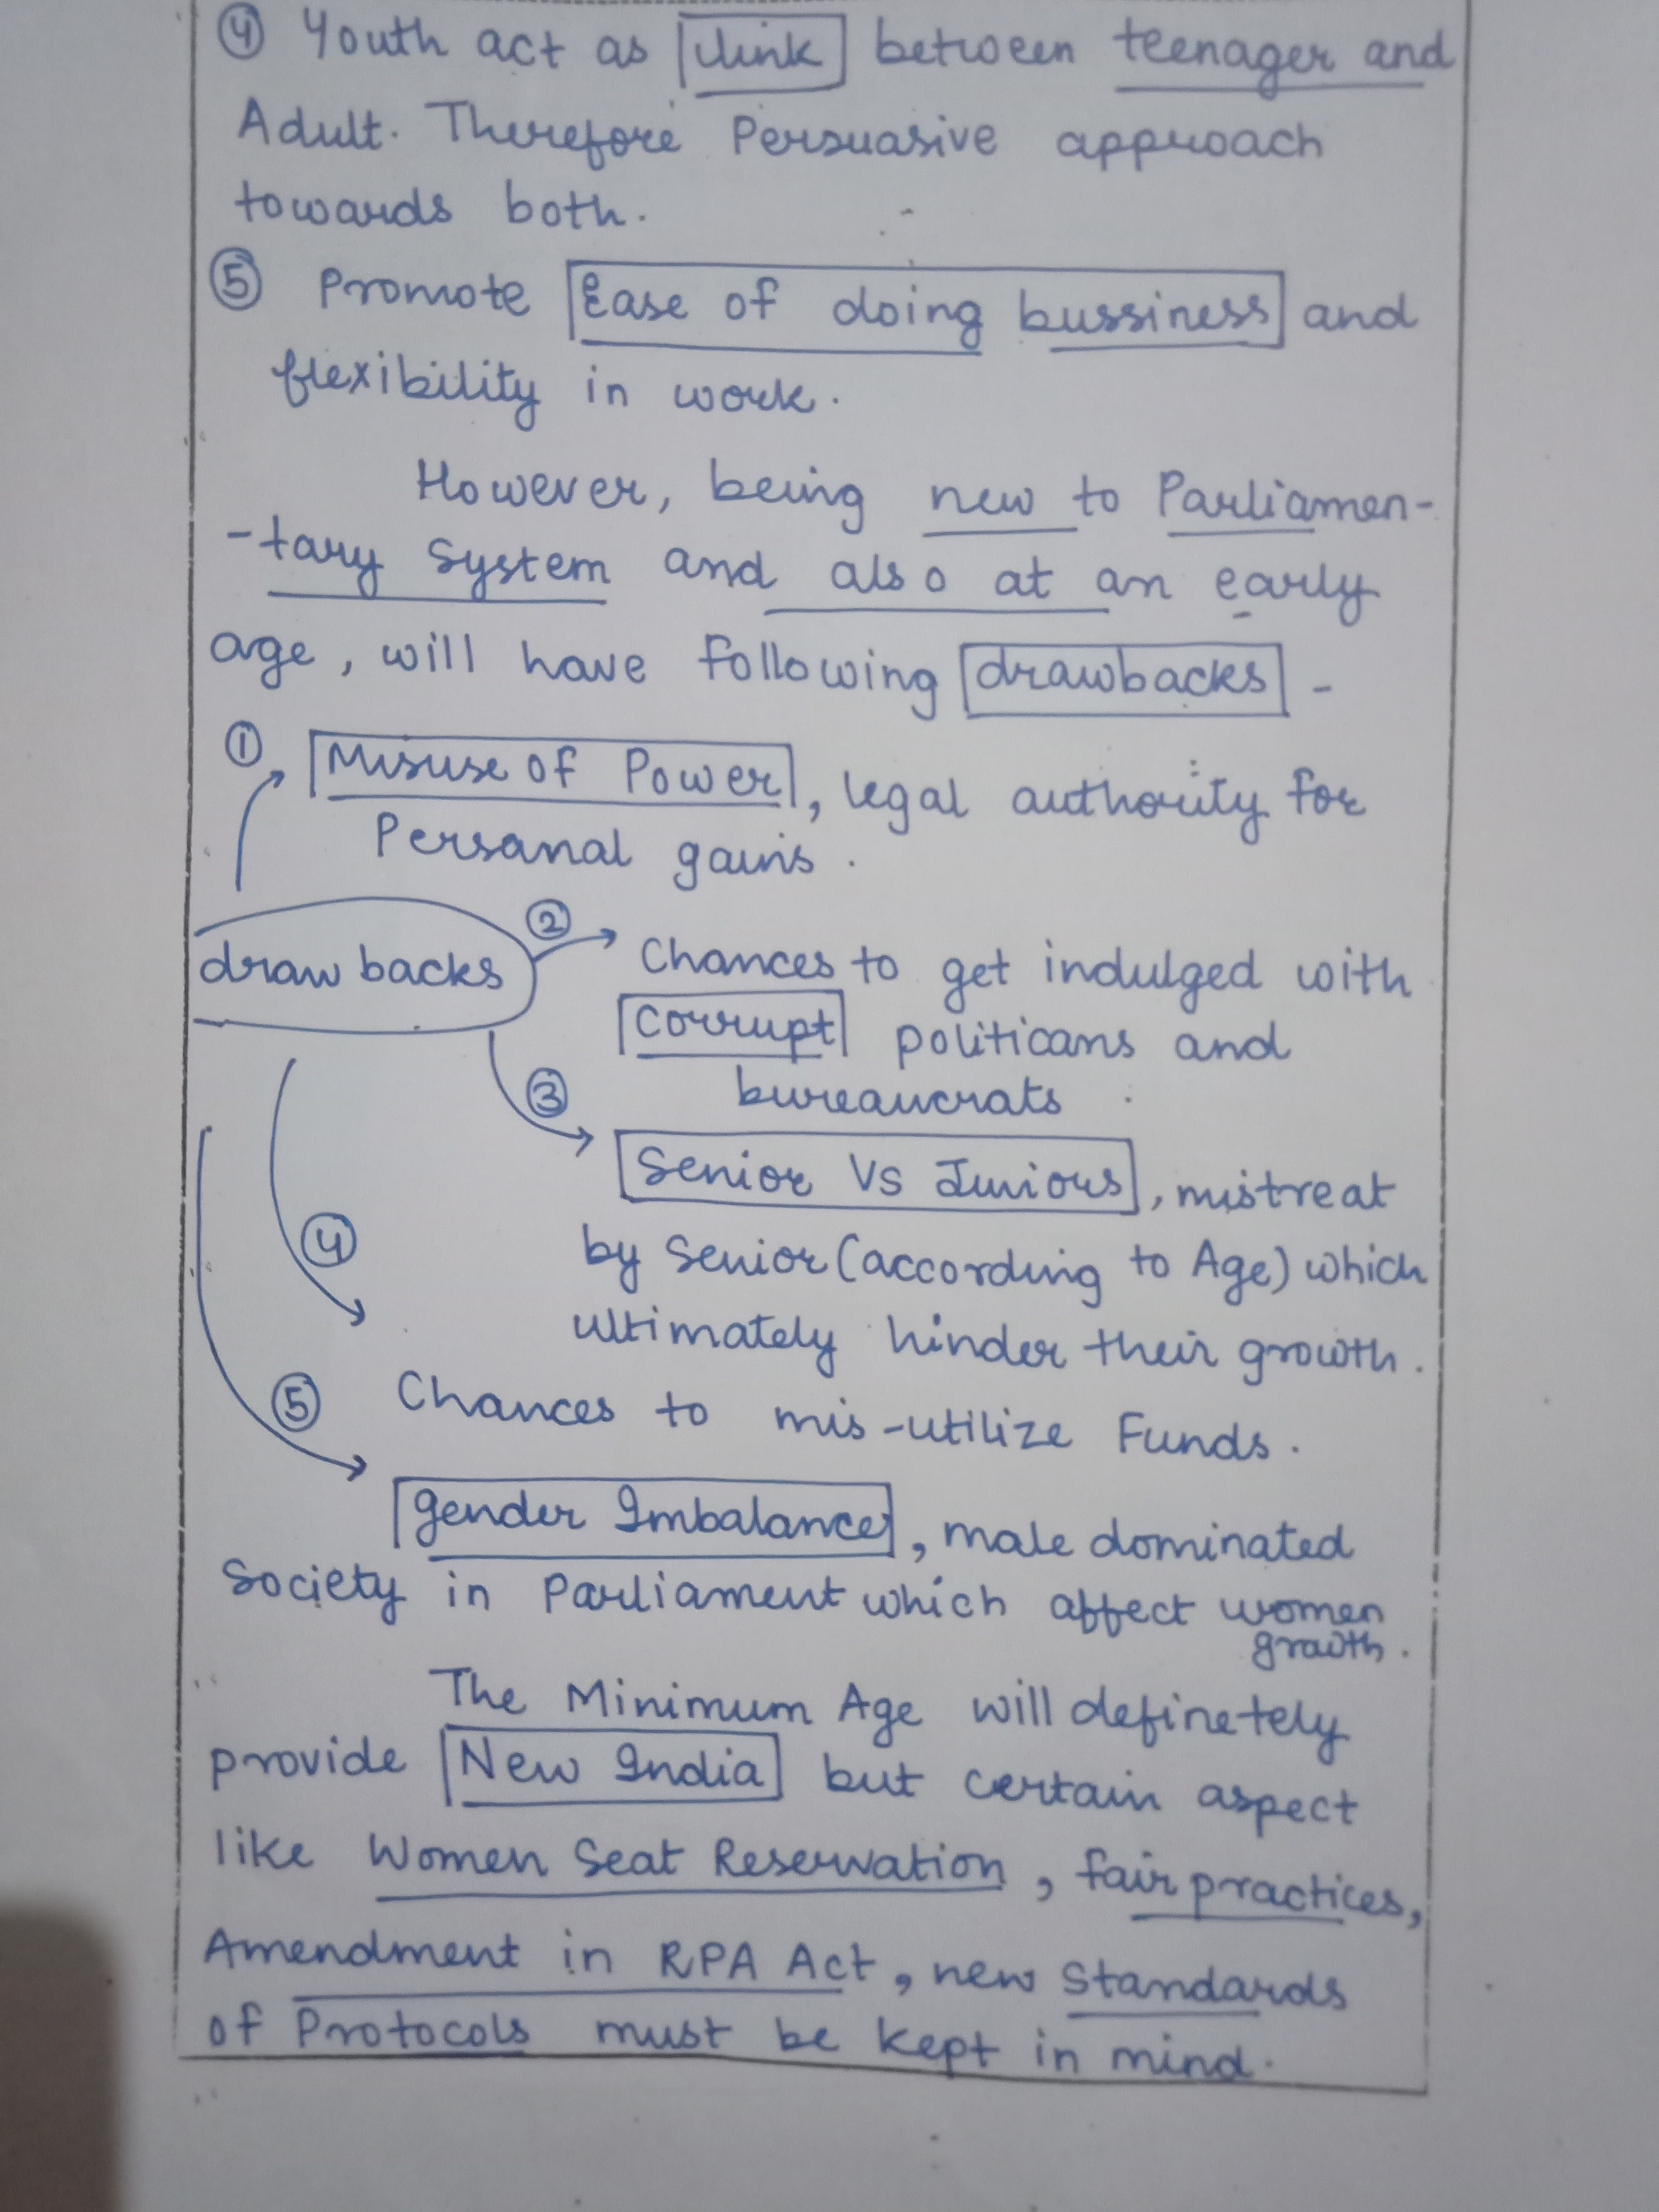 ④ Youth act as link between teenager and
Adult. Therefore Persuasive approach
towards both.
⑤ Promote Ease of doing bussiness and
flexibility in work.
However, being new to Parliamen-
-tary System and also at an early
age, will have following drawbacks -
① Misuse of Power, legal authority for
Personal gains.
draw backs
② Chances to get indulged with
Corrupt politicans and
bureaucrats
③ Senior Vs Juniors, mistreat
by Senior (according to Age) which
ultimately hinder their growth.
④ Chances to mis-utilize Funds.
⑤ gender Imbalance, male dominated
Society in Parliament which affect women
growth.
The Minimum Age will definetely
provide New India but certain aspect
like Women Seat Reservation, fair practices,
Amendment in RPA Act, new standards
of Protocols must be kept in mind.